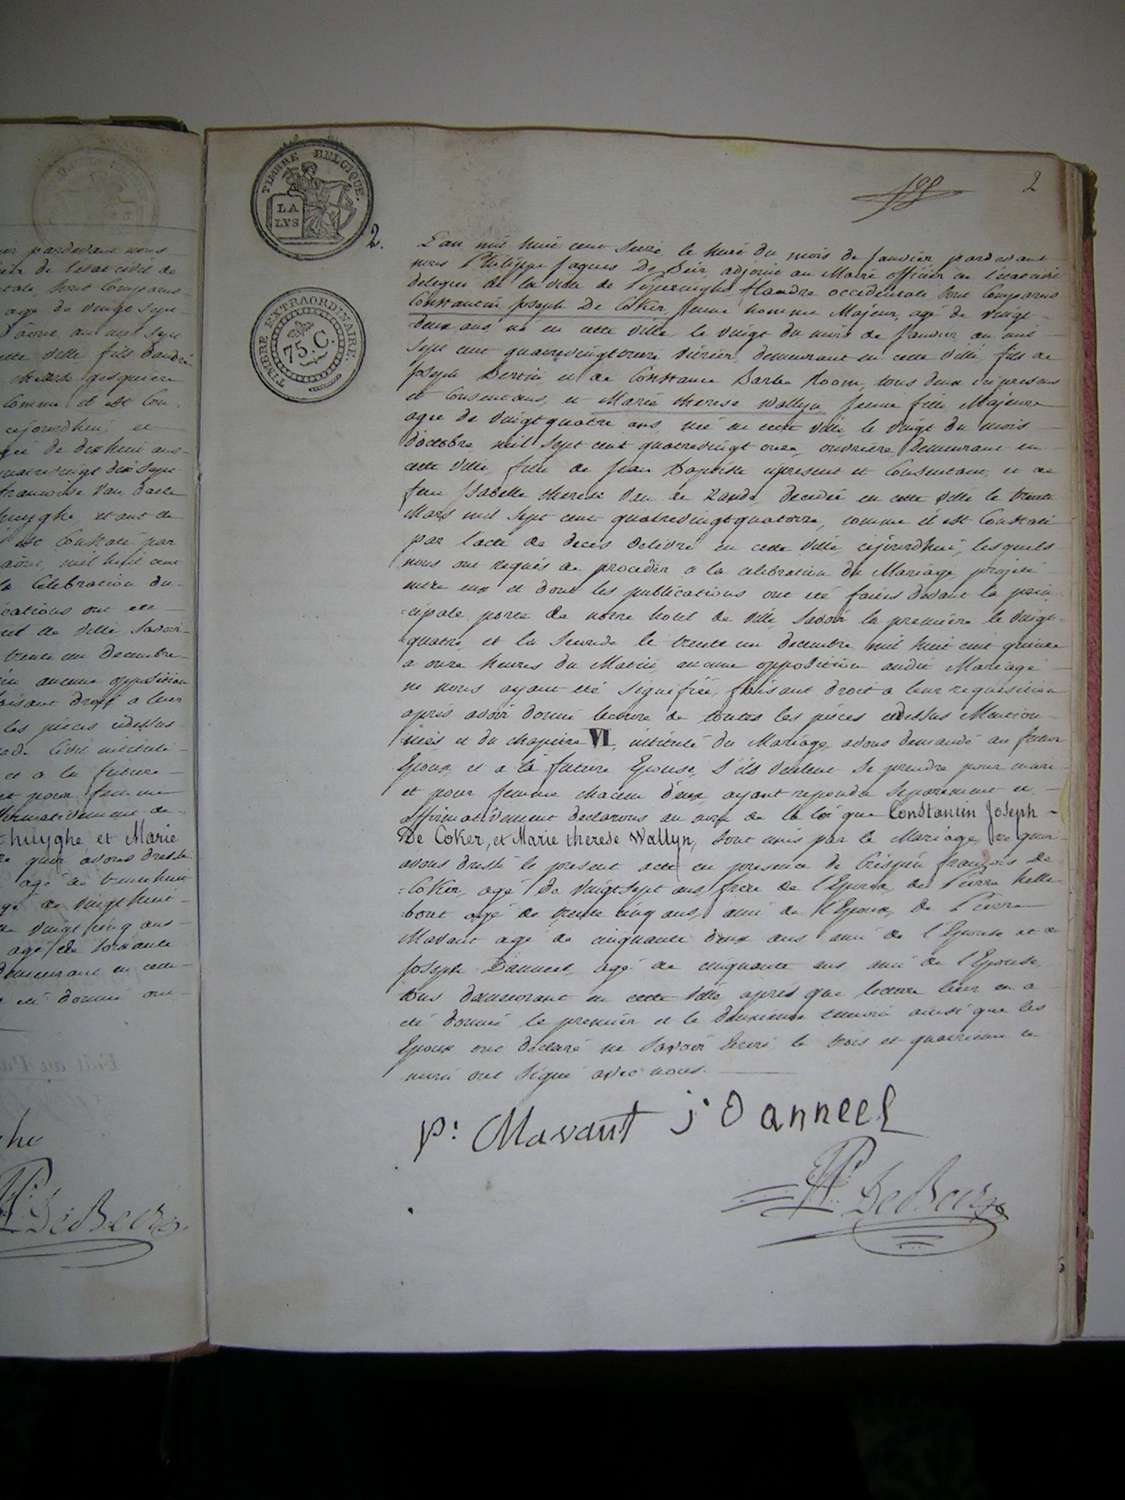 er pardevant nous
cier de l'etat civil de
tale, sont comparus
age de vingt sept
ette ville fils d'andré
comme il est con
cejourdhui et
age de dix huit ans
quatre vingt dix sept
francoise Van daele
huyghe et ont de
est constaté par
aout, mil huit cent
la celebration du
ications ont été
tel de ville savoir
trente un decembre
in aucune opposition
faisant droit a leur
les pièces cidessus
et a la future
et pour femme
thuyghe et Marie
agé de trente huit
agé de vingt huit
de vingt cinq ans
agé de soixante
demeurant en cette
eté donné
DeBeir
TIMBRE BELGIQUE.
LA
LYS
TIMBRE EXTRAORDINAIRE.
75 C.
2
2.
L'an mil huit cent seize le huit du mois de Janvier pardevant
nous Philippe Jaques De Beir, adjoint au Maire officier de l'etat civil
delegué de la ville de Poperinghe Flandre occidentale, sont comparus
Constantin Joseph De Coker, jeune homme Majeur, agé de vingt
deux ans né en cette ville le vingt du mois de Janvier an mil
sept cent quatrevingt treize demeurant en cette ville, fils de
Joseph Bertin et de Constance Barbe Room, tous deux cy presens
et consentans, et Marie therese Wallyn jeune fille Majeure
agée de vingt quatre ans née en cette ville le vingt du mois
d'octobre mil sept cent quatrevingt onze, ouvrière, demeurant en
cette ville, fille de Jean Baptiste cy present et consentant, et de
feue Isabelle therese Van de Zande, decedée en cette ville le trente
Mars mil sept cent quatrevingt quatorze, comme il est constaté
par l'acte de decès delivré en cette ville cejourdhui, lesquels
nous ont requis de proceder a la celebration du Mariage projeté
entre eux et dont les publications ont été faites devant la prin
=cipale porte de notre hotel de ville, savoir la première le vingt
quatre, et la seconde le trente un decembre mil huit cent quinze
a onze heures du Matin aucune opposition audit Mariage
ne nous ayant été signifiée, faisant droit a leur requisition
après avoir donné lecture de toutes les pièces cidessus Mention
=nées et du chapitre VI, intitulé du Mariage, avons demandé au futur
Epoux, et a la future Epouse, s'ils veulent se prendre pour mari
et pour femme chacun d'eux ayant repondu separement et
affirmativement declarons au nom de la loi que Constantin Joseph
De Coker, et Marie therese Wallyn, sont unis par le Mariage, de quoi
avons dressé le present acte en presence de Crispin françois De
=Coker, agé de vingt sept ans, frere de l'Epoux, de Pierre Helle
bout agé de trente cinq ans, ami de l'Epoux, de Pierre
Mavant agé de cinquante deux ans ami de l'Epouse et de
Joseph Danneel, agé de cinquante ans ami de l'Epouse,
tous demeurant en cette ville, après que lecture leur en a
été donné le premier et le deuxieme temoin ainsi que les
Epoux ont déclaré ne savoir Ecrire le trois et quatrieme te
moin ont signé avec nous.
p: Mavant j: Danneel
DeBeir